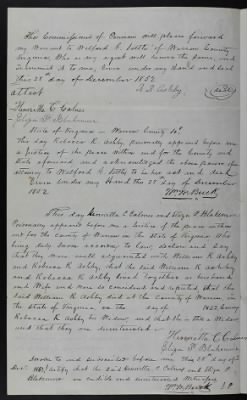 The Commissioner of Pensions will please forward
my Warrant to Welford C. Settle of Warren County
Virginia, Who is my agent will locate the same, and
transmit it to me, Given under my hand and seal
this 28th day of December 1852
attest R. R. Ashby (seal)
Henrietta C. Calmes
Eliza P. Blakemore
State of Virginia Warren County
This day Rebecca R. Ashby personally appeared before me
a Justice of the peace within and for the County and
State aforesaid and acknowledged the above power of
attorney to Welford C. Settle to be her act and deed.
Given under my Hand this 28th day of December
1852 Wm M. Buck
This day Henrietta C. Calmes and Eliza P. Blakemore
Personally appeared before me a Justice of the peace within
and for the County of Warren in the State of Virginia Who
being duly sworn according to law, declare and say
that they were well acquainted with William R. Ashby
and Rebecca R. Ashby, that the said William R. Ashby
and Rebecca R. Ashby lived together as husband
and Wife and were so considered and reputed that the
said William R. Ashby died at the County of Warren in
the State of Virginia on the day of 1852 leaving
Rebecca R. Ashby his Widow, and that she is still a Widow
and that they are uninterested
Henrietta C. Calmes
Eliza P. Blakemore
Sworn to and subscribed before me this 28th day of
Decr. 1852, I certify that the said Henrietta C. Calmes and Eliza P.
Blakemore are credible and uninterested Witnesses
Wm M. Buck J.P.